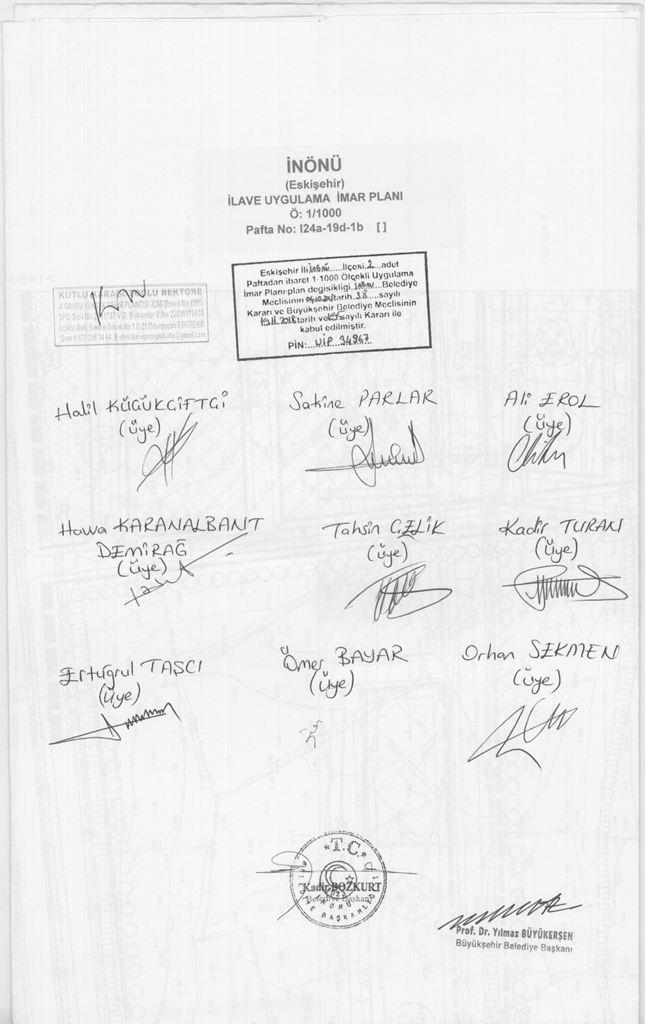 İNÖNÜ
(Eskişehir)
İLAVE UYGULAMA İMAR PLANI
Ö: 1/1000
Pafta No: I24a-19d-1b [ ]
Eskişehir İli İnönü İlçesi 2 adet
Paftadan ibaret 1-1000 Ölçekli Uygulama
İmar Planı-plan degisikligi İnönü Belediye
Meclisinin tarih sayılı
Kararı ve Büyükşehir Belediye Meclisinin
tarih ve sayılı Kararı ile
kabul edilmiştir.
PİN: UİP 34967
Halil KÜÇÜKÇİFTÇİ
(üye)
Sakine PARLAR
(üye)
Ali EROL
(üye)
Havva KARANALBANT
DEMİRAĞ
(üye)
Tahsin ÇELİK
(üye)
Kadir TURAN
(üye)
Ertuğrul TAŞCI
(üye)
Ömer BAYAR
(üye)
Orhan SEKMEN
(üye)
T.C.
Kadir BOZKURT
Belediye Başkanı
Prof. Dr. Yılmaz BÜYÜKERŞEN
Büyükşehir Belediye Başkanı